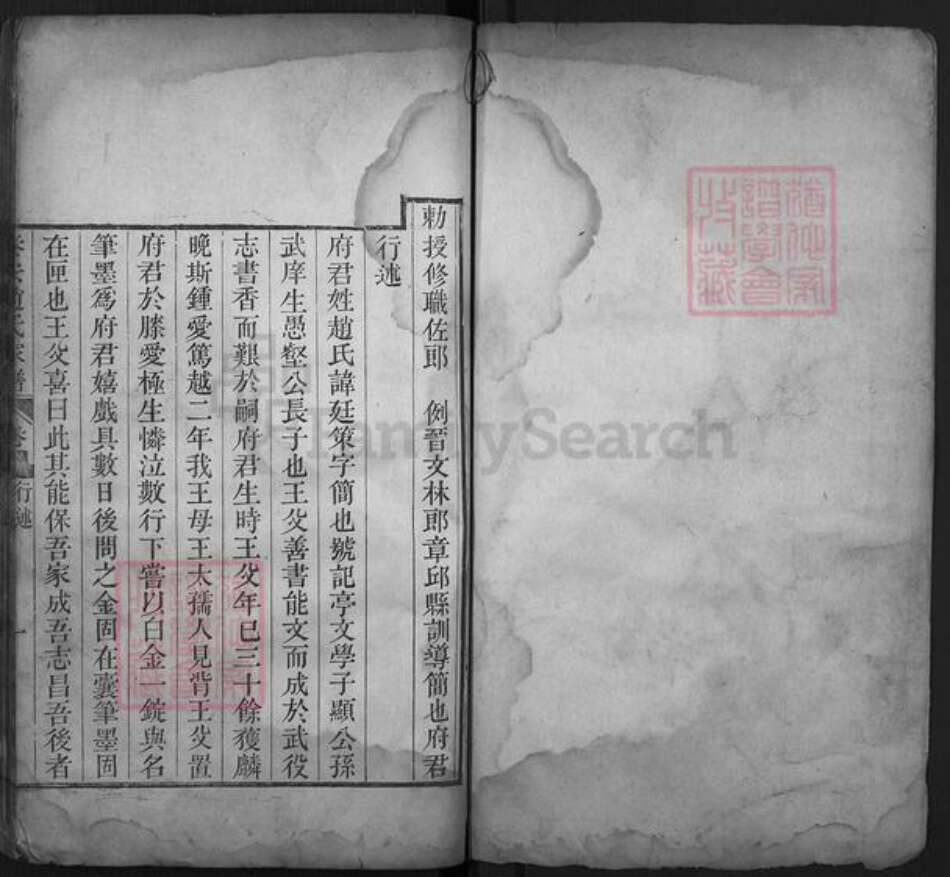 勅授修職佐郎　例晉文林郎章邱縣訓導簡也府君
行述
府君姓趙氏諱廷策字簡也號記亭文學子顯公孫
武庠生愚壑公長子也王父善書能文而成於武役
志書香而艱於嗣府君生時王父年已三十餘獲麟
晚斯鍾愛篤越二年我王母王太孺人見背王父置
府君於膝愛極生憐泣數行下嘗以白金一錠與名
筆墨爲府君嬉戲具數日後問之金固在囊筆墨固
在匣也王父喜曰此其能保吾家成吾志昌吾後者
氏家譜
卷
行述
一
譜學會
收藏
FamilySearch